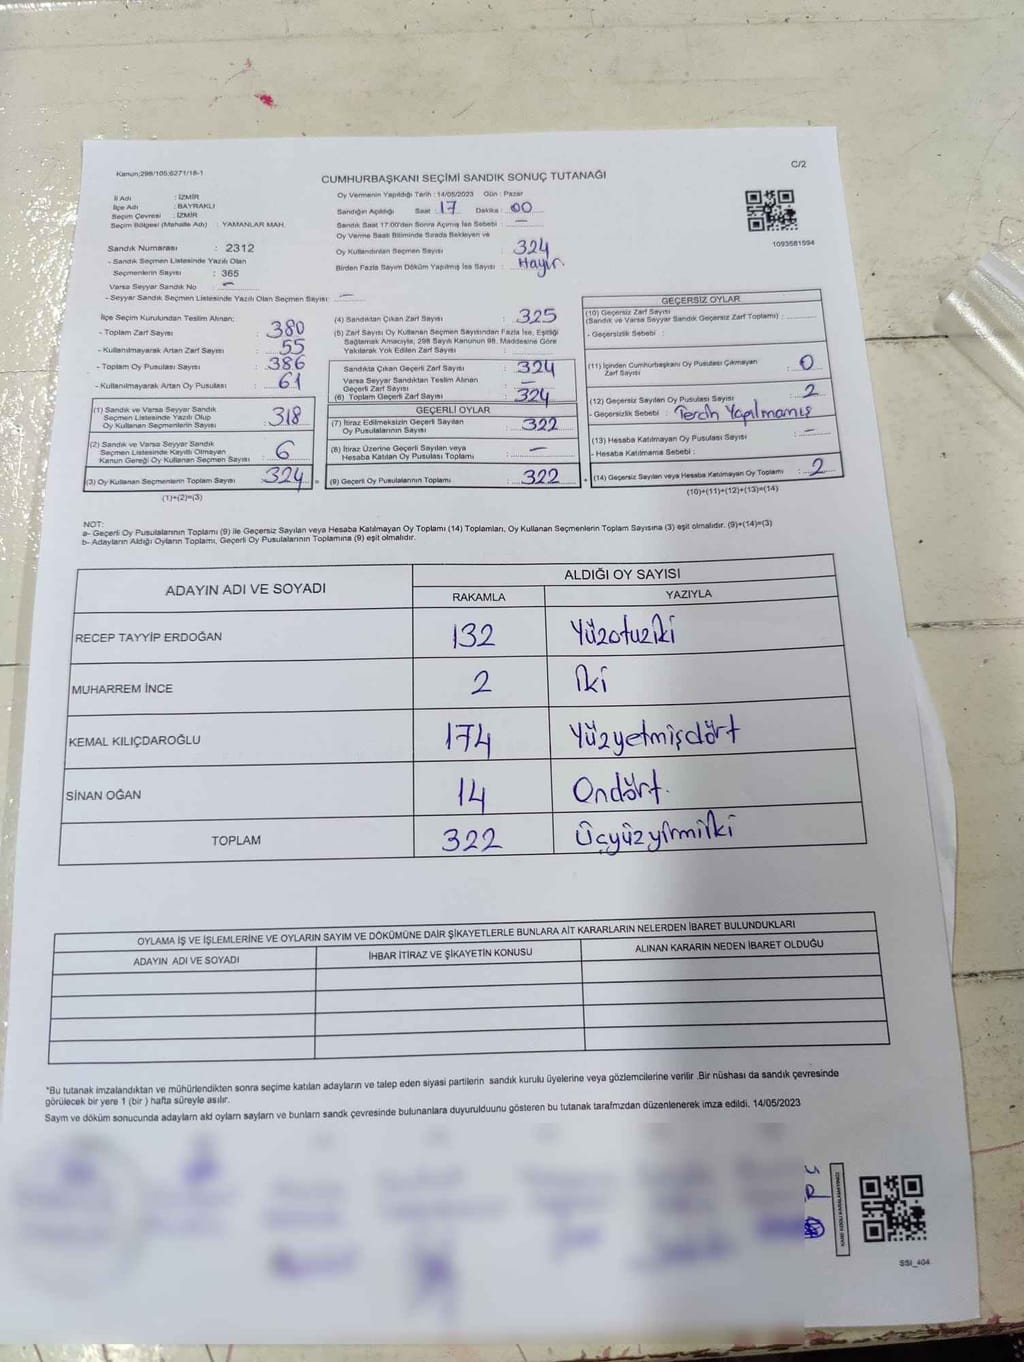 Kanun;298/105;6271/18-1
C/2
CUMHURBAŞKANI SEÇİMİ SANDIK SONUÇ TUTANAĞI
İl Adı : İZMİR
İlçe Adı : BAYRAKLI
Seçim Çevresi : İZMİR
Seçim Bölgesi (Mahalle Adı) : YAMANLAR MAH.
Sandık Numarası : 2312
- Sandık Seçmen Listesinde Yazılı Olan
Seçmenlerin Sayısı : 365
Varsa Seyyar Sandık No : –
- Seyyar Sandık Seçmen Listesinde Yazılı Olan Seçmen Sayısı: –
Oy Vermenin Yapıldığı Tarih : 14/05/2023 Gün : Pazar
Sandığın Açıldığı Saat : 17 Dakika : 00
Sandık Saat 17:00'den Sonra Açımış İse Sebebi : –
Oy Verme Saati Bitiminde Sırada Bekleyen ve
Oy Kullandırılan Seçmen Sayısı : 324
Birden Fazla Sayım Döküm Yapılmış İse Sayısı : Hayır
1093581594
İlçe Seçim Kurulundan Teslim Alınan;
- Toplam Zarf Sayısı : 380
- Kullanılmayarak Artan Zarf Sayısı : 55
- Toplam Oy Pusulası Sayısı : 386
- Kullanılmayarak Artan Oy Pusulası : 61
(1) Sandık ve Varsa Seyyar Sandık
Seçmen Listesinde Yazılı Olup
Oy Kullanan Seçmenlerin Sayısı : 318
(2) Sandık ve Varsa Seyyar Sandık
Seçmen Listesinde Kayıtlı Olmayan
Kanun Gereği Oy Kullanan Seçmen Sayısı : 6
(3) Oy Kullanan Seçmenlerin Toplam Sayısı : 324 =
(1)+(2)=(3)
(4) Sandıktan Çıkan Zarf Sayısı : 325
(5) Zarf Sayısı Oy Kullanan Seçmen Sayısından Fazla İse, Eşitliği
Sağlamak Amacıyla, 298 Sayılı Kanunun 98. Maddesine Göre
Yakılarak Yok Edilen Zarf Sayısı :
Sandıkta Çıkan Geçerli Zarf Sayısı : 324
Varsa Seyyar Sandıktan Teslim Alınan
Geçerli Zarf Sayısı : –
(6) Toplam Geçerli Zarf Sayısı : 324
GEÇERLİ OYLAR
(7) İtiraz Edilmeksizin Geçerli Sayılan
Oy Pusulasının Sayısı : 322
(8) İtiraz Üzerine Geçerli Sayılan veya
Hesaba Katılan Oy Pusulası Toplamı : –
(9) Geçerli Oy Pusulalarının Toplamı : 322 +
GEÇERSİZ OYLAR
(10) Geçersiz Zarf Sayısı
(Sandık ve Varsa Seyyar Sandık Geçersiz Zarf Toplamı) :
- Geçersizlik Sebebi :
(11) İçinden Cumhurbaşkanı Oy Pusulası Çıkmayan
Zarf Sayısı : 0
(12) Geçersiz Sayılan Oy Pusulası Sayısı : 2
- Geçersizlik Sebebi : Tercih Yapılmamış
(13) Hesaba Katılmayan Oy Pusulası Sayısı : –
- Hesaba Katılmama Sebebi :
(14) Geçersiz Sayılan veya Hesaba Katılmayan Oy Toplamı : 2
(10)+(11)+(12)+(13)=(14)
NOT:
a- Geçerli Oy Pusulalarının Toplamı (9) ile Geçersiz Sayılan veya Hesaba Katılmayan Oy Toplamı (14) Toplamları, Oy Kullanan Seçmenlerin Toplam Sayısına (3) eşit olmalıdır. (9)+(14)=(3)
b- Adayların Aldığı Oyların Toplamı, Geçerli Oy Pusulalarının Toplamına (9) eşit olmalıdır.
ADAYIN ADI VE SOYADI ALDIĞI OY SAYISI
RAKAMLA YAZIYLA
RECEP TAYYİP ERDOĞAN 132 Yüzotuziki
MUHARREM İNCE 2 İki
KEMAL KILIÇDAROĞLU 174 Yüzyetmişdört
SİNAN OĞAN 14 Ondört.
TOPLAM 322 Üçyüzyirmiiki
OYLAMA İŞ VE İŞLEMLERİNE VE OYLARIN SAYIM VE DÖKÜMÜNE DAİR ŞİKAYETLERLE BUNLARA AİT KARARLARIN NELERDEN İBARET BULUNDUKLARI
ADAYIN ADI VE SOYADI İHBAR İTİRAZ VE ŞİKAYETİN KONUSU ALINAN KARARIN NEDEN İBARET OLDUĞU
*Bu tutanak imzalandıktan ve mühürlendikten sonra seçime katılan adayların ve talep eden siyasi partilerin sandık kurulu üyelerine veya gözlemcilerine verilir .Bir nüshası da sandık çevresinde
görülecek bir yere 1 (bir ) hafta süreyle asılır.
Sayım ve döküm sonucunda adayların aldı oyların sayıları ve bunların sandk çevresinde bulunanlara duyurulduunu gösteren bu tutanak tarafmzdan düzenlenerek imza edildi. 14/05/2023
SSI_404